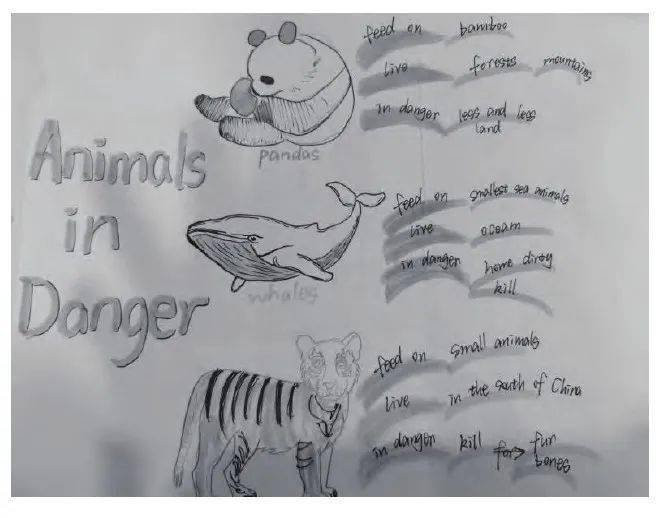 Animals
in
Danger
feed on bamboo
live forests mountains
in danger less and less
land
pandas
feed on smallest sea animals
live ocean
in danger home dirty
kill
whales
feed on small animals
live in the south of China
in danger kill for → fur
bones